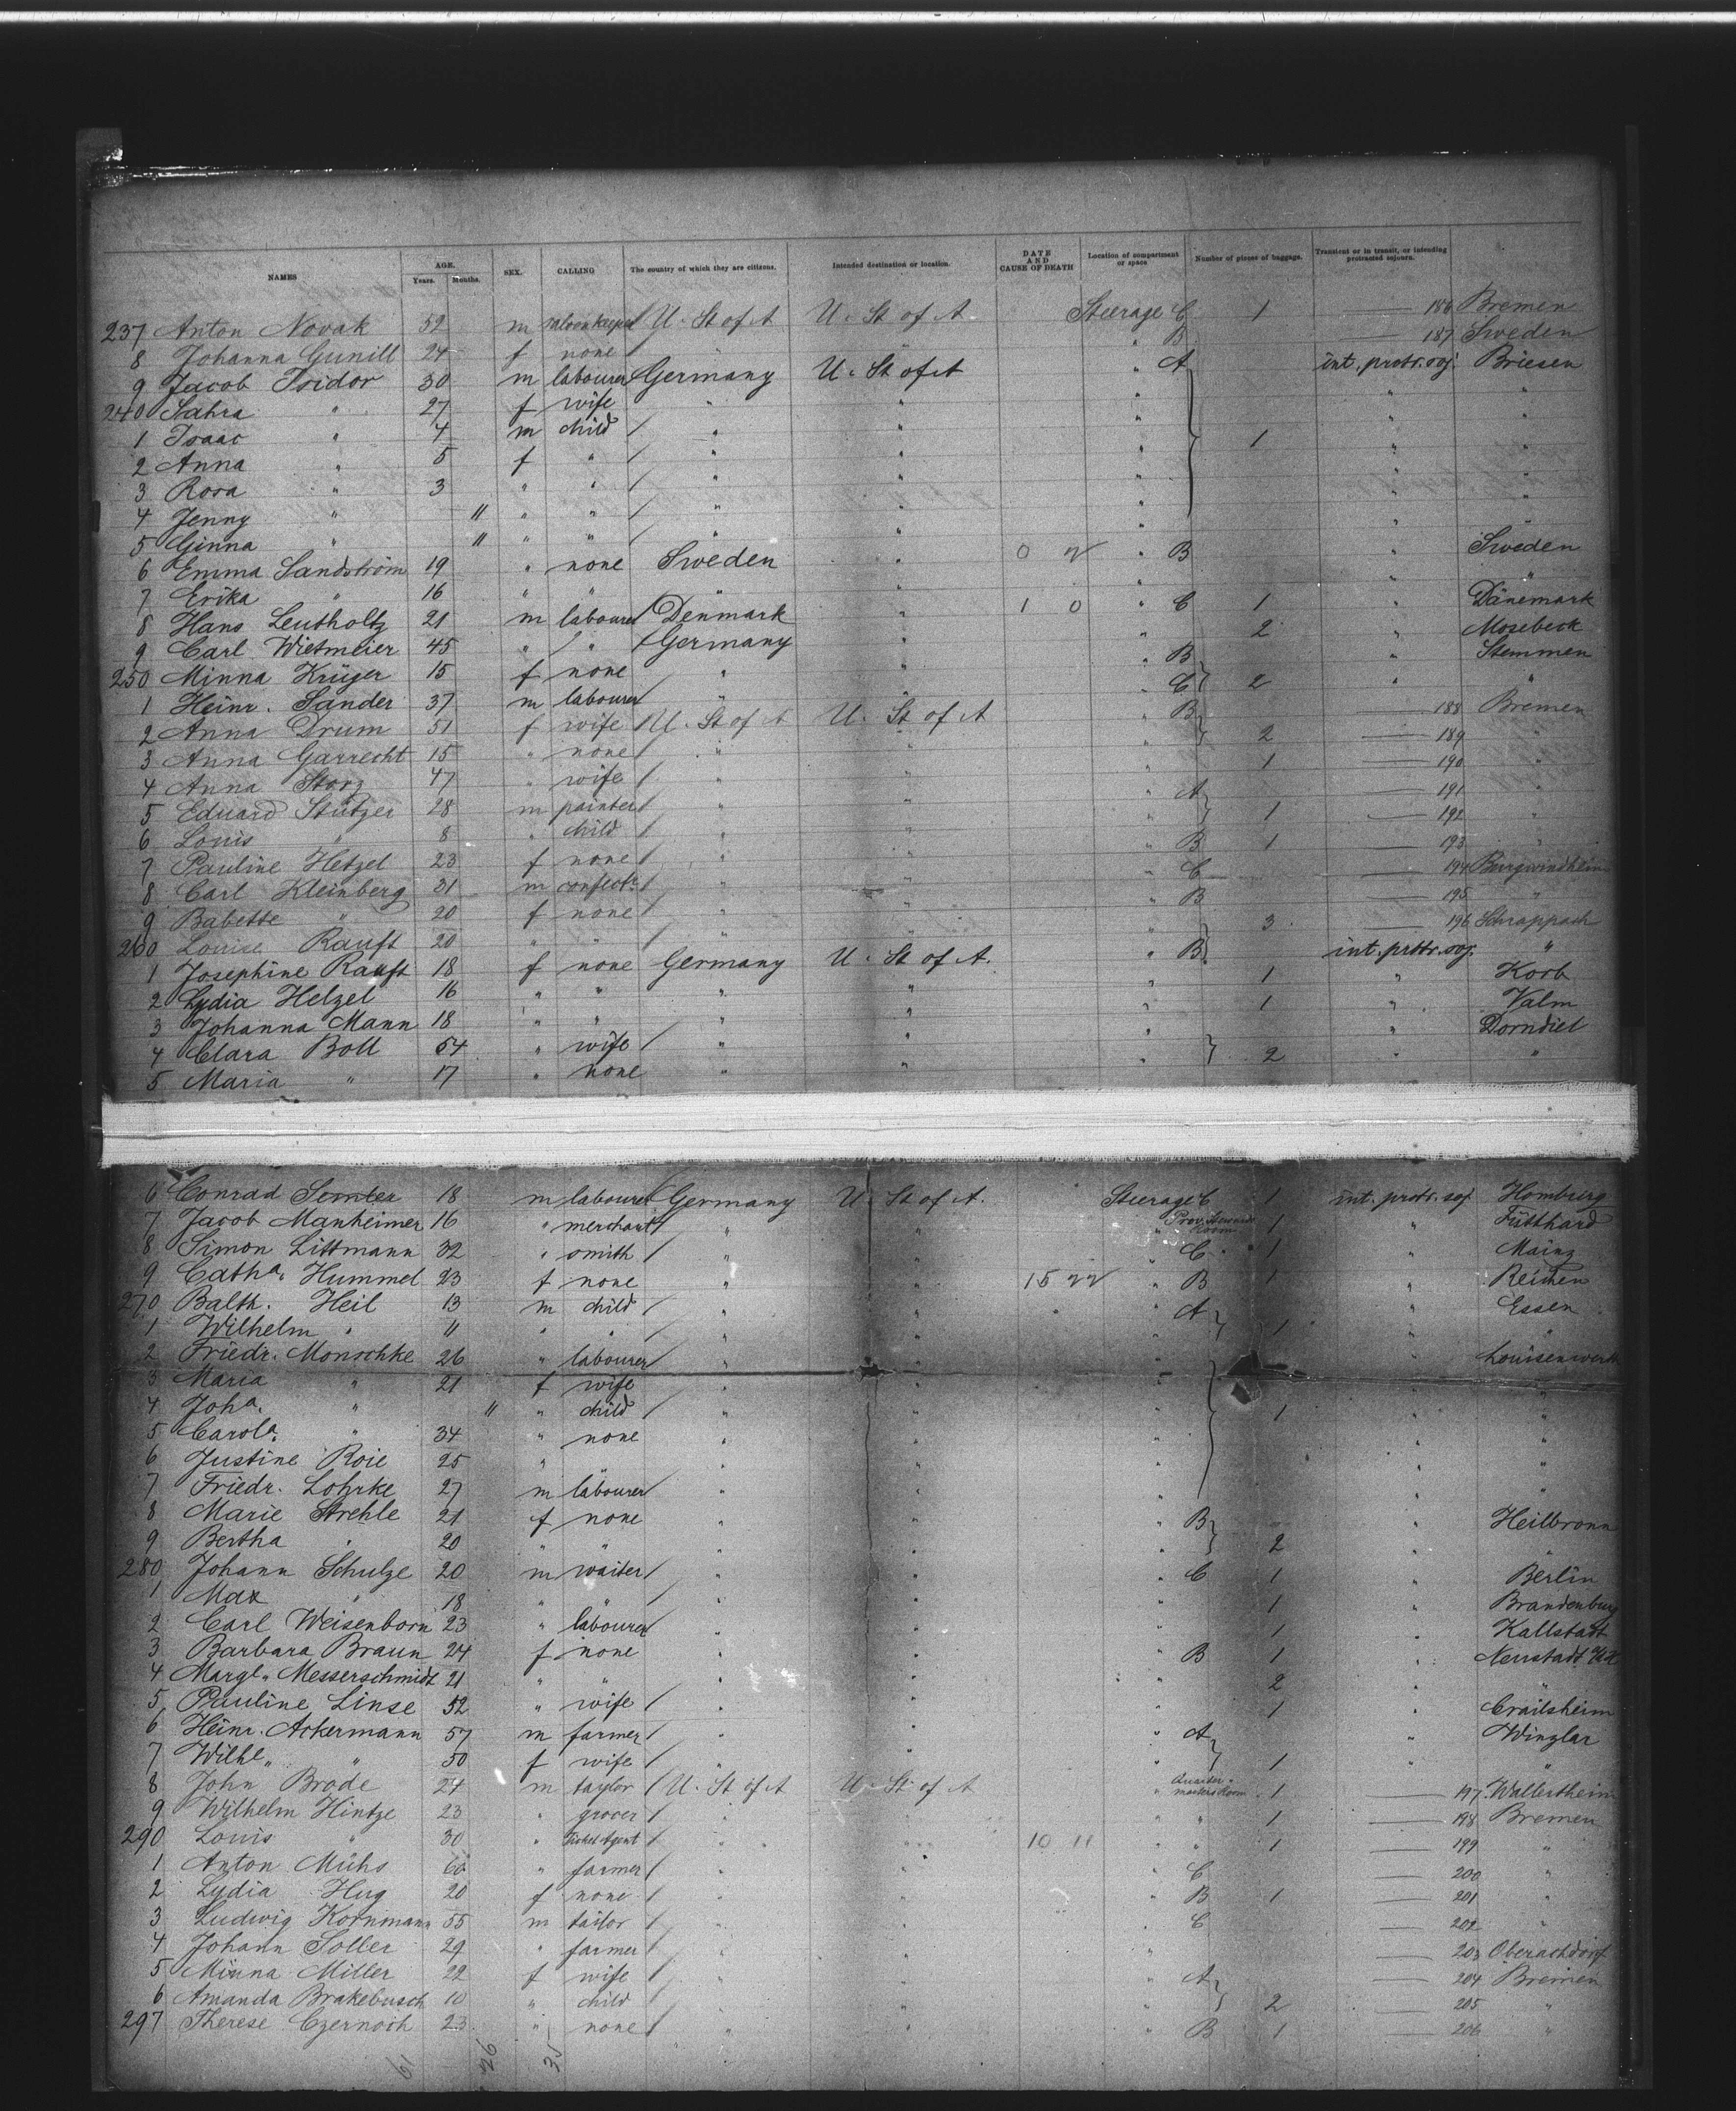 NAMES AGE. Years. Months. SEX. CALLING The country of which they are citizens. Intended destination or location. DATE AND CAUSE OF DEATH Location of compartment or space Number of pieces of baggage. Transient or in transit, or intending protracted sojourn.
237 Anton Novak 52 m saloonkeeper U. St of A U. St of A Steerage C 1 — 186 Bremen
8 Johanna Gunill 24 f none " B — 187 Sweden
9 Jacob Isidor 30 m labourer Germany U. St of A " A int. protr. soj. Briesen
240 Sahra " 27 f wife " " " " "
1 Isaac " 4 m child " " " 1 " "
2 Anna " 5 f " " " " " "
3 Rosa " 3 " " " " " " "
4 Jenny " 11 " " " " " " "
5 Ginna " 11 " " " " " "
6 Emma Sandström 19 " none Sweden " 0 " B " Sweden
7 Erika " 16 " " " " " "
8 Hans Leutholtz 21 m labourer Denmark " 1 0 " C 1 " Dänemark
9 Carl Wietmeier 45 " " Germany " " 2 " Mosebeck
250 Minna Krüger 15 f none " " " B " Stemmen
1 Heinr. Sander 37 m labourer " " " C 2 " "
2 Anna Drum 51 f wife U. St of A U. St of A " B — 188 Bremen
3 Anna Garrecht 15 " none " " " 2 — 189 "
4 Anna Storz 47 " wife " " " 1 — 190 "
5 Eduard Stützer 28 m painter " " " A — 191 "
6 Louis " 8 " child " " " 1 — 192 "
7 Pauline Hetzel 23 f none " " " B 1 — 193 "
8 Carl Kleinberg 31 m confectr. " " " C — 194 Burgwindheim
9 Babette " 20 f none " " " B — 195 "
260 Louise Rauft 20 " " " " " 3 — 196 Schrappach
1 Josephine Rauft 18 f none Germany U. St of A. " B int. prttr. soj. "
2 Lydia Helzel 16 " " " " " 1 " Korb
3 Johanna Mann 18 " " " " " 1 " Valm
4 Clara Boll 54 " wife " " " " Dorndiel
5 Maria " 17 " none " " " 2 " "
6 Conrad Semler 18 m labourer Germany U. St of A. Steerage C 1 int. protr. soj. Homburg
7 Jacob Manheimer 16 " merchant " " " Prov. Stewards Room 1 " Fütthard
8 Simon Littmann 32 " smith " " " C 1 " Mainz
9 Catha. Hummel 23 f none " " 15 " B 1 " Reichen
270 Balth. Heil 13 m child " " " A " Essen
1 Wilhelm " 11 " " " " " 1 " "
2 Friedr. Monschke 26 " labourer " " " " Louisenwerth
3 Maria " 21 f wife " " " " "
4 Joha. " 11 " child " " " 1 " "
5 Carola. " 34 " none " " " " "
6 Justine Roie 25 " " " " " " "
7 Friedr. Lohrke 27 m labourer " " " " "
8 Marie Strehle 21 f none " " " B " Heilbronn
9 Bertha " 20 " " " " " 2 " "
280 Johann Schulze 20 m waiter " " " C 1 " Berlin
1 Max " 18 " " " " " 1 " Brandenburg
2 Carl Weisenborn 23 " labourer " " " 1 " Kallstadt
3 Barbara Braun 24 f none " " " B 1 " Neustadt
4 Margt. Messerschmidt 21 " " " " " 2 " "
5 Pauline Linse 52 " wife " " " 1 " Crailsheim
6 Heinr. Ackermann 57 m farmer " " " A " Winzlar
7 Wilhe. " 50 f wife " " " 1 " "
8 John Brode 24 m taylor U. St of A U. St of A " Quarter-masters Room 1 — 197 Wallertheim
9 Wilhelm Hintze 23 " grocer " " " " 1 — 198 Bremen
290 Louis " 30 " ticket Agent " " 10 11 " " 1 — 199 "
1 Anton Mühs 60 " farmer " " " C — 200 "
2 Lydia Hug 20 f none " " " B 1 — 201 "
3 Ludwig Kornmann 55 m tailor " " " C — 202 "
4 Johann Soller 29 " farmer " " " — 203 Oberachdorf
5 Minna Miller 22 f wife " " " A — 204 Bremen
6 Amanda Brakebusch 10 " child " " " 2 — 205 "
297 Therese Czernoch 23 " none " " " B 1 — 206 "
61 26 35